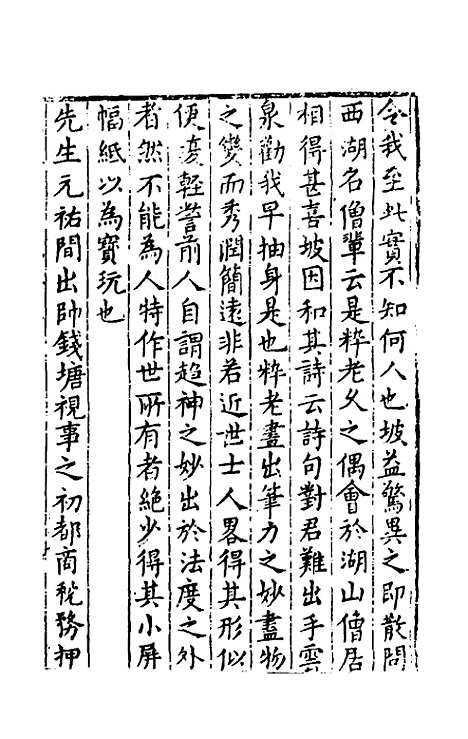 令我至此實不知何人也坡益驚異之即散問
西湖名僧輩云是粹老久之偶會於湖山僧居
相得甚喜坡因和其詩云詩句對君難出手雲
泉勸我早抽身是也粹老畫出筆力之妙盡物
之變而秀潤簡遠非若近世士人畧得其形似
便復輕訾前人自謂超神之妙出於法度之外
者然不能為人特作世所有者絶少得其小屏
幅紙以為寶玩也
先生元祐間出帥錢塘視事之初都商稅務押